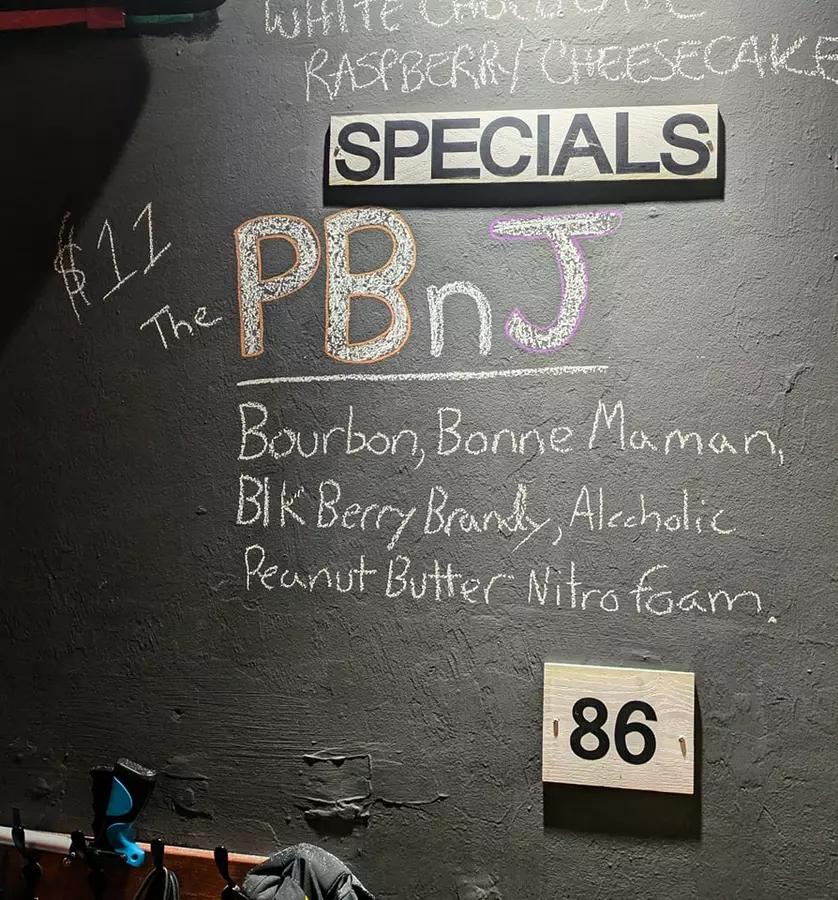 WHITE CHOCOLATE
RASPBERRY CHEESECAKE
SPECIALS
$11
The PBnJ
Bourbon, Bonne Maman,
Blk Berry Brandy, Alcoholic
Peanut Butter Nitro foam.
86